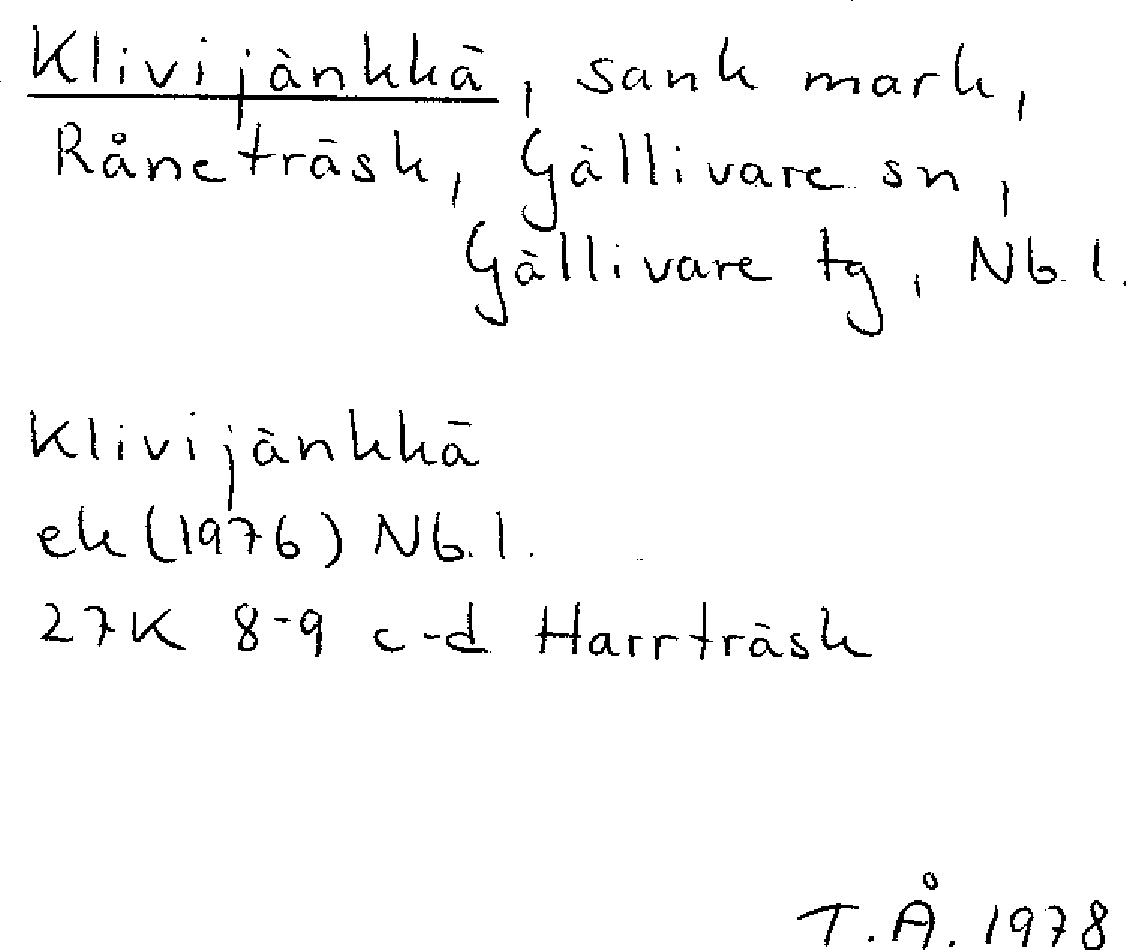 Klivijänkkä, sank mark,
Råneträsk, Gällivare sn,
Gällivare tg, Nb. l.
Klivijänkkä
ek (1976) Nb. l.
27K 8-9 c-d Harrträsk
T.Å. 1978